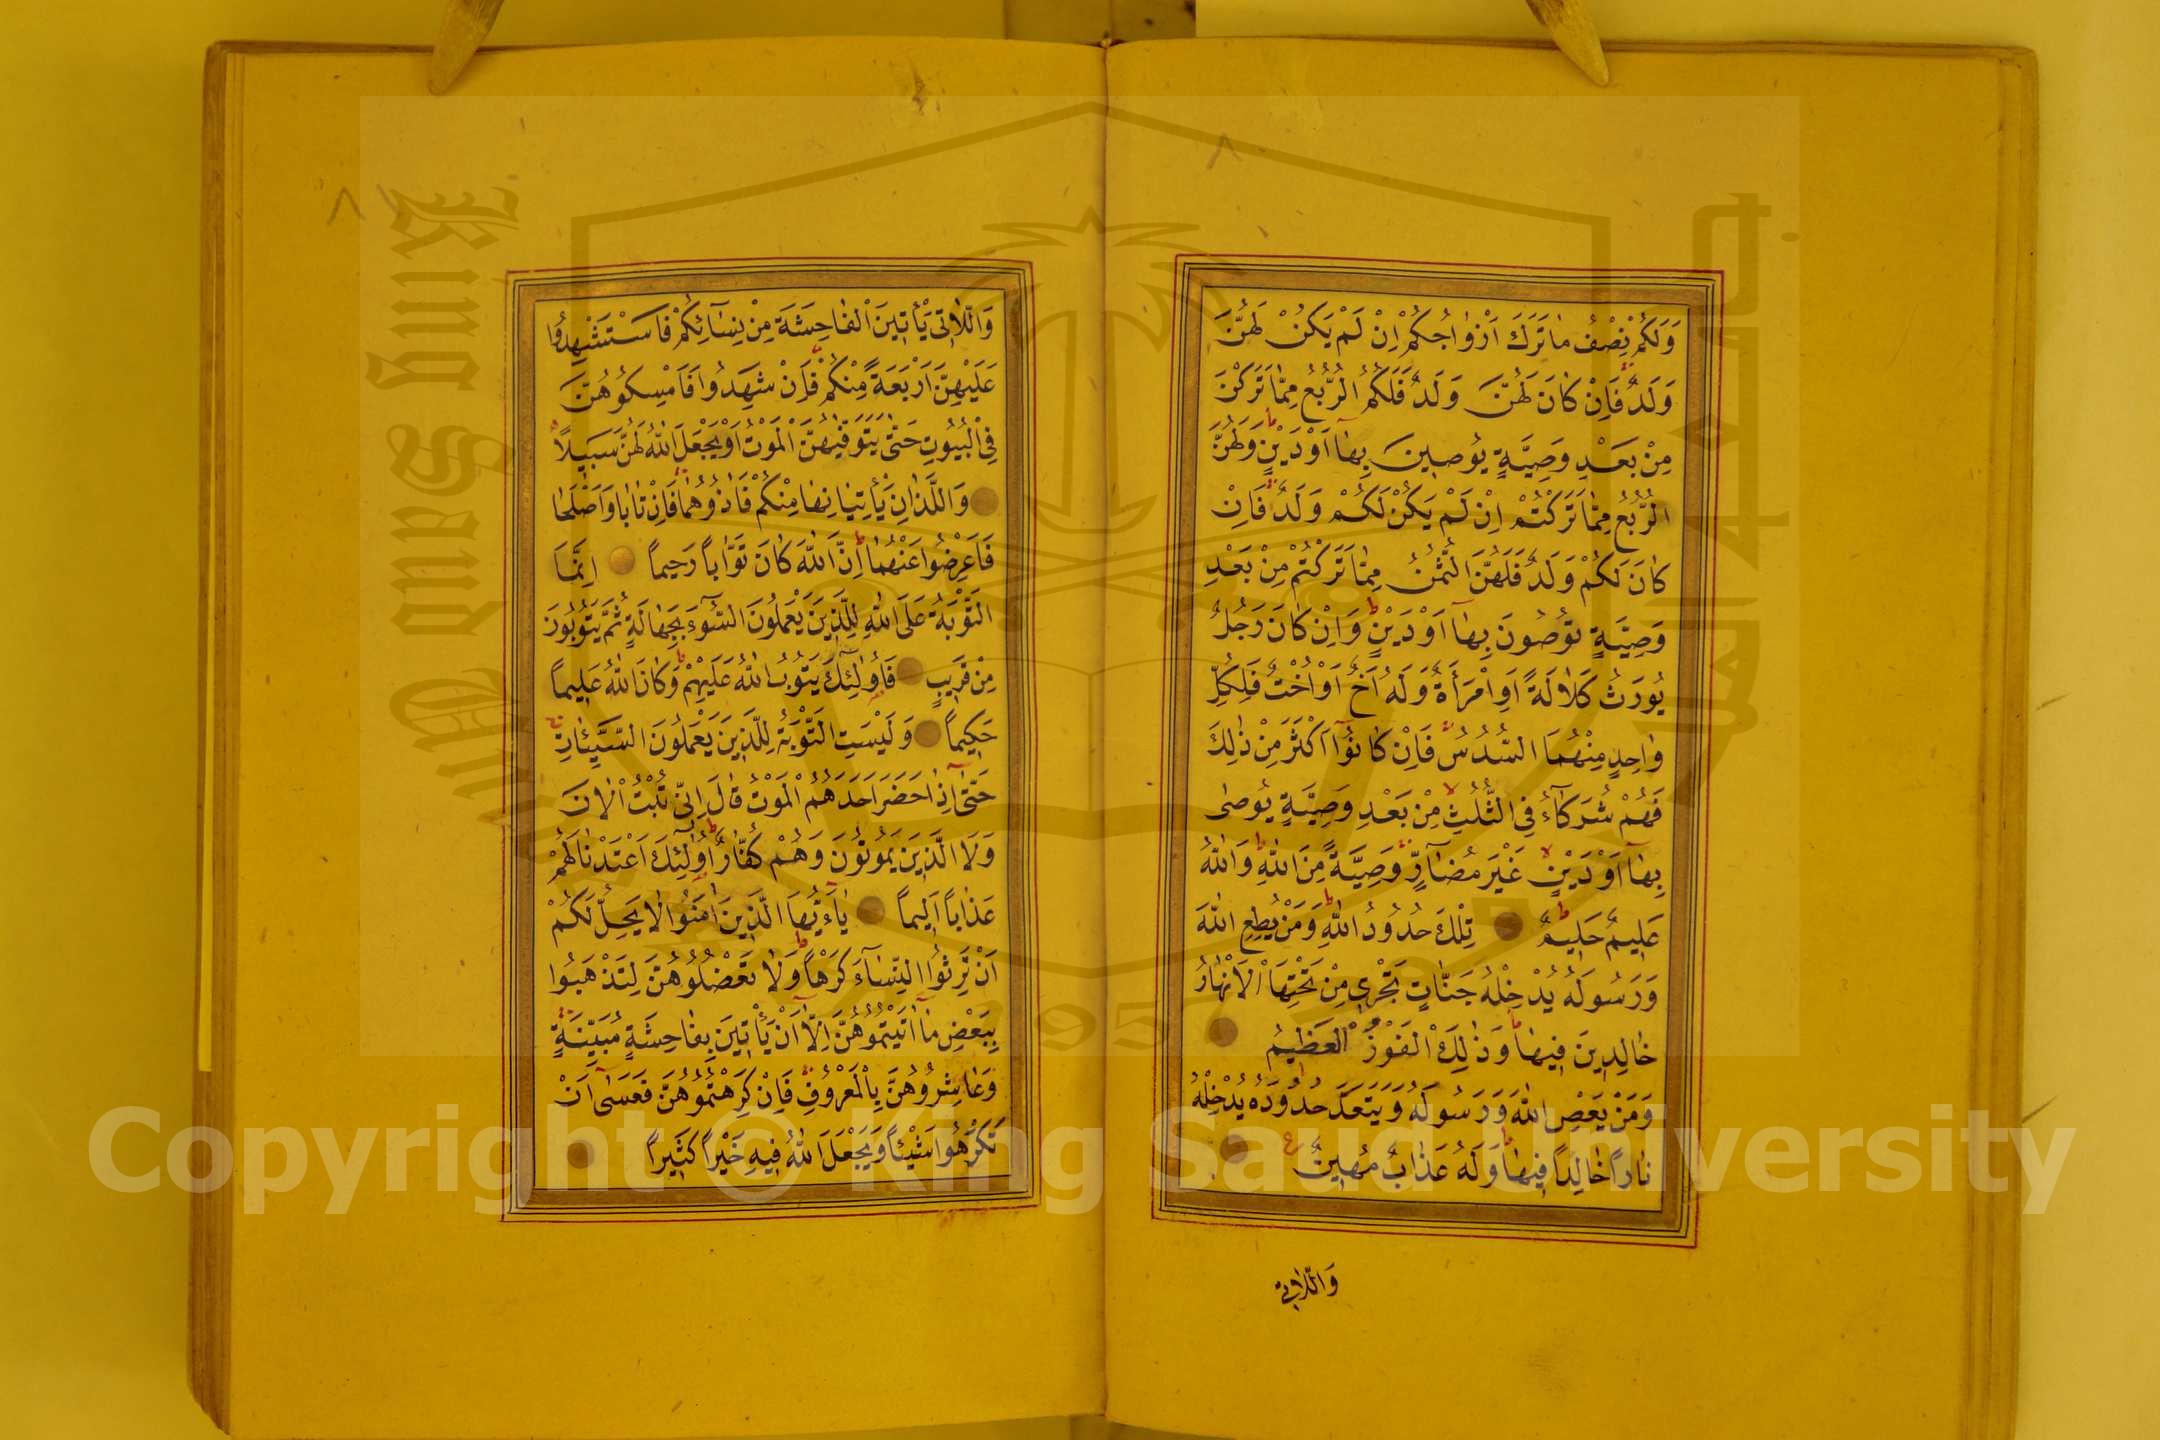 وَلَكُمْ نِصْفُ مَا تَرَكَ اَزْوَاجُكُمْ اِنْ لَمْ يَكُنْ لَهُنَّ
وَلَدٌ فَاِنْ كَانَ لَهُنَّ وَلَدٌ فَلَكُمُ الرُّبُعُ مِمَّا تَرَكْنَ
مِنْ بَعْدِ وَصِيَّةٍ يُوصِينَ بِهَآ اَوْ دَيْنٍ وَلَهُنَّ
الرُّبُعُ مِمَّا تَرَكْتُمْ اِنْ لَمْ يَكُنْ لَكُمْ وَلَدٌ فَاِنْ
كَانَ لَكُمْ وَلَدٌ فَلَهُنَّ الثُّمُنُ مِمَّا تَرَكْتُمْ مِنْ بَعْدِ
وَصِيَّةٍ تُوصُونَ بِهَآ اَوْ دَيْنٍ وَاِنْ كَانَ رَجُلٌ
يُورَثُ كَلَالَةً اَوِ امْرَأَةٌ وَلَهُ اَخٌ اَوْ اُخْتٌ فَلِكُلِّ
وَاحِدٍ مِنْهُمَا السُّدُسُ فَاِنْ كَانُوٓا اَكْثَرَ مِنْ ذٰلِكَ
فَهُمْ شُرَكَآءُ فِي الثُّلُثِ مِنْ بَعْدِ وَصِيَّةٍ يُوصٰى
بِهَآ اَوْ دَيْنٍ غَيْرَ مُضَآرٍّ وَصِيَّةً مِنَ اللّٰهِ وَاللّٰهُ
عَلِيمٌ حَلِيمٌ تِلْكَ حُدُودُ اللّٰهِ وَمَنْ يُطِعِ اللّٰهَ
وَرَسُولَهُ يُدْخِلْهُ جَنَّاتٍ تَجْرِي مِنْ تَحْتِهَا الْاَنْهَارُ
خَالِدِينَ فِيهَا وَذٰلِكَ الْفَوْزُ الْعَظِيمُ
وَمَنْ يَعْصِ اللّٰهَ وَرَسُولَهُ وَيَتَعَدَّ حُدُودَهُ يُدْخِلْهُ
نَارًا خَالِدًا فِيهَا وَلَهُ عَذَابٌ مُهِينٌ ع
وَاللَّاتِي
وَاللَّاتِي يَأْتِينَ الْفَاحِشَةَ مِنْ نِسَآئِكُمْ فَاسْتَشْهِدُوا
عَلَيْهِنَّ اَرْبَعَةً مِنْكُمْ فَاِنْ شَهِدُوا فَاَمْسِكُوهُنَّ
فِي الْبُيُوتِ حَتّٰى يَتَوَفّٰيهُنَّ الْمَوْتُ اَوْ يَجْعَلَ اللّٰهُ لَهُنَّ سَبِيلًا
وَاللَّذَانِ يَأْتِيَانِهَا مِنْكُمْ فَاٰذُوهُمَا فَاِنْ تَابَا وَاَصْلَحَا
فَاَعْرِضُوا عَنْهُمَا اِنَّ اللّٰهَ كَانَ تَوَّابًا رَحِيمًا اِنَّمَا
التَّوْبَةُ عَلَى اللّٰهِ لِلَّذِينَ يَعْمَلُونَ السُّوٓءَ بِجَهَالَةٍ ثُمَّ يَتُوبُونَ
مِنْ قَرِيبٍ فَاُولٰٓئِكَ يَتُوبُ اللّٰهُ عَلَيْهِمْ وَكَانَ اللّٰهُ عَلِيمًا
حَكِيمًا وَلَيْسَتِ التَّوْبَةُ لِلَّذِينَ يَعْمَلُونَ السَّيِّئَاتِ
حَتّٰٓى اِذَا حَضَرَ اَحَدَهُمُ الْمَوْتُ قَالَ اِنِّي تُبْتُ الْاٰنَ
وَلَا الَّذِينَ يَمُوتُونَ وَهُمْ كُفَّارٌ اُولٰٓئِكَ اَعْتَدْنَا لَهُمْ
عَذَابًا اَلِيمًا يَآ اَيُّهَا الَّذِينَ اٰمَنُوا لَا يَحِلُّ لَكُمْ
اَنْ تَرِثُوا النِّسَآءَ كَرْهًا وَلَا تَعْضُلُوهُنَّ لِتَذْهَبُوا
بِبَعْضِ مَآ اٰتَيْتُمُوهُنَّ اِلَّآ اَنْ يَأْتِينَ بِفَاحِشَةٍ مُبَيِّنَةٍ
وَعَاشِرُوهُنَّ بِالْمَعْرُوفِ فَاِنْ كَرِهْتُمُوهُنَّ فَعَسٰٓى اَنْ
تَكْرَهُوا شَيْئًا وَيَجْعَلَ اللّٰهُ فِيهِ خَيْرًا كَثِيرًا
Copyright © King Saud University
King Saud
1957